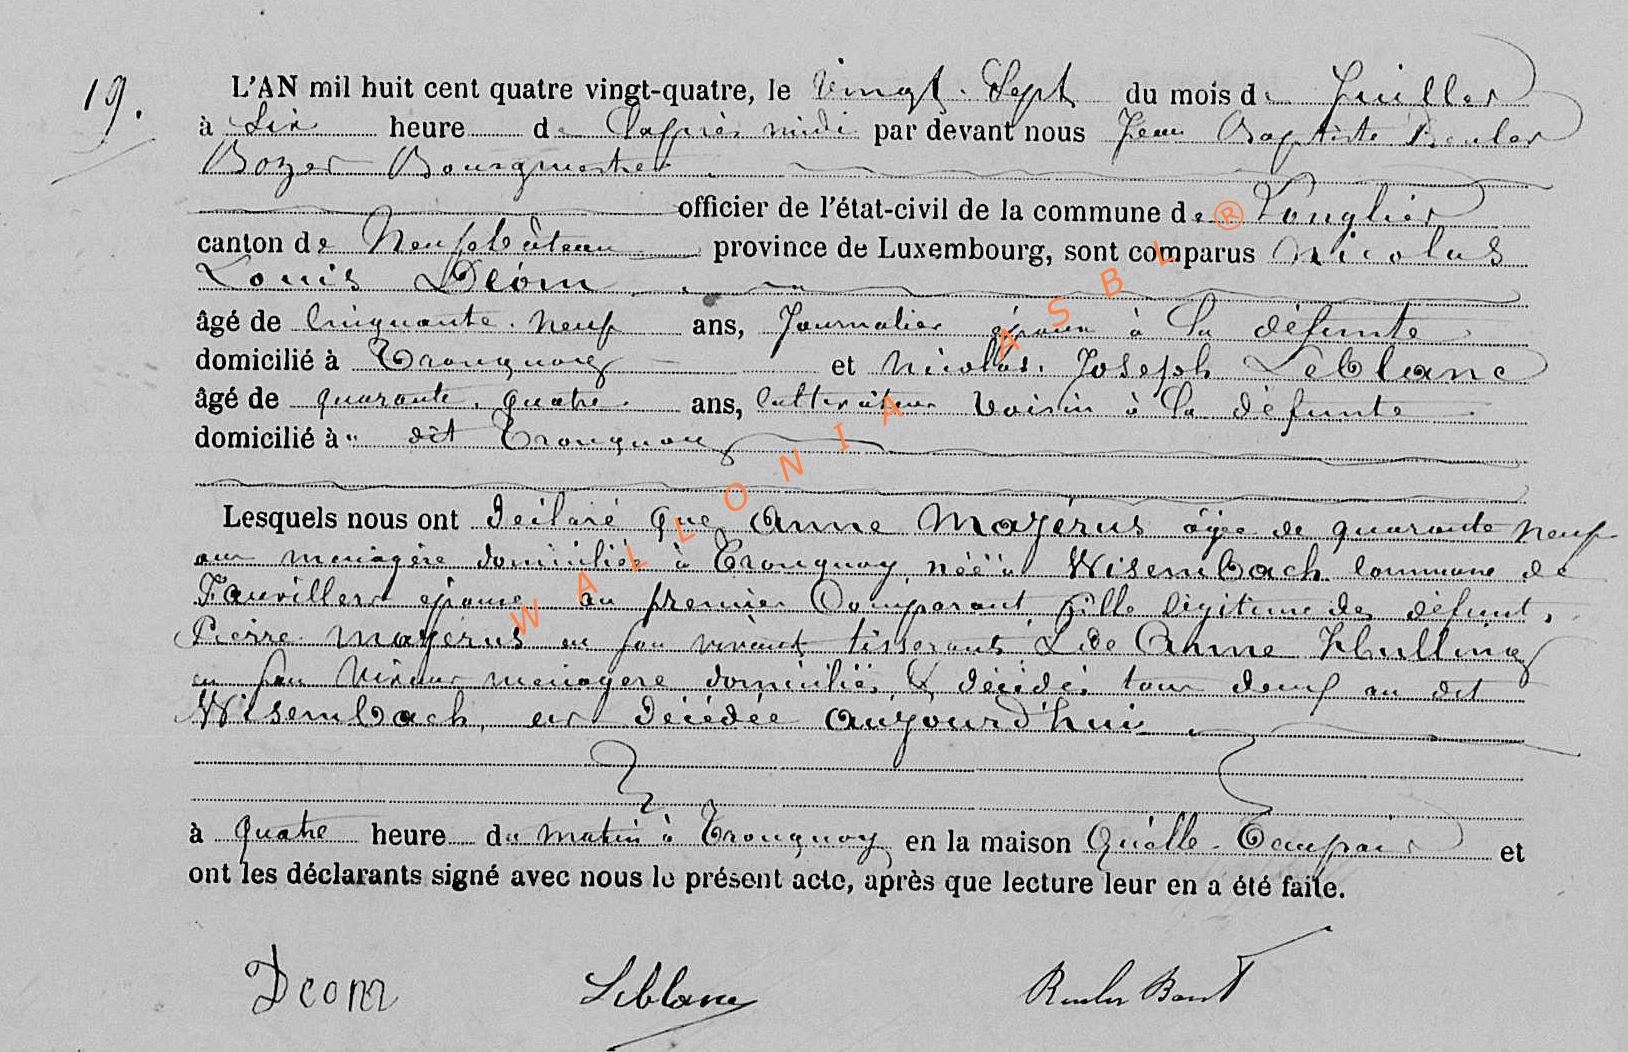 19. L'AN mil huit cent quatre vingt-quatre, le vingt-Sept du mois de Juillet
à Six heure de l'après midi par devant nous Jean Baptiste
Bourgmestre
officier de l'état-civil de la commune de Longlier
canton de Neufchâteau province de Luxembourg, sont comparus Nicolas
Louis Déom
âgé de Cinquante-neuf ans, Journalier époux à la défunte
domicilié à Tronquoy et Nicolas Joseph Leblanc
âgé de quarante-quatre ans, Cultivateur Voisin à la défunte
domicilié à dit Tronquoy
Lesquels nous ont déclaré que Anne Mayérus âgée de quarante neuf
ans menagère domiciliée à Tronquoy, née à Wisembach commune de
Fauviller épouse au premier Comparant fille légitime des défunt,
Pierre Mayérus en son vivant tisserant & de Anne
en son vivant menagère domiciliés & décédés tous deux au dit
Wisembach, est décédée aujourd'hui
à quatre heure du matin à Tronquoy en la maison et
ont les déclarants signé avec nous le présent acte, après que lecture leur en a été faite.
Deom Leblanc
WALLONIA ASBL ®